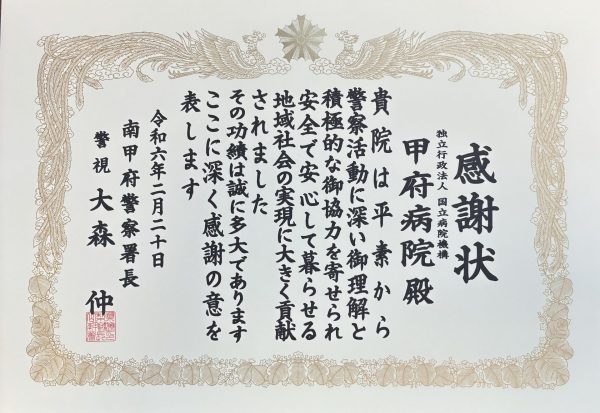 感謝状
独立行政法人 国立病院機構
甲府病院 殿
貴院は平素から
警察活動に深い御理解と
積極的な御協力を寄せられ
安全で安心して暮らせる
地域社会の実現に大きく貢献
されました
その功績は誠に多大であります
ここに深く感謝の意を
表します
令和六年二月二十日
南甲府警察署長
警視 大森 仲